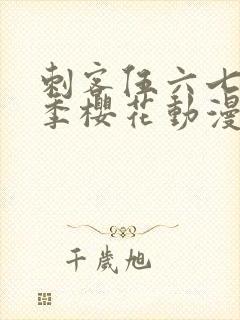 刺客伍六七
季櫻花動漫
千歲旭